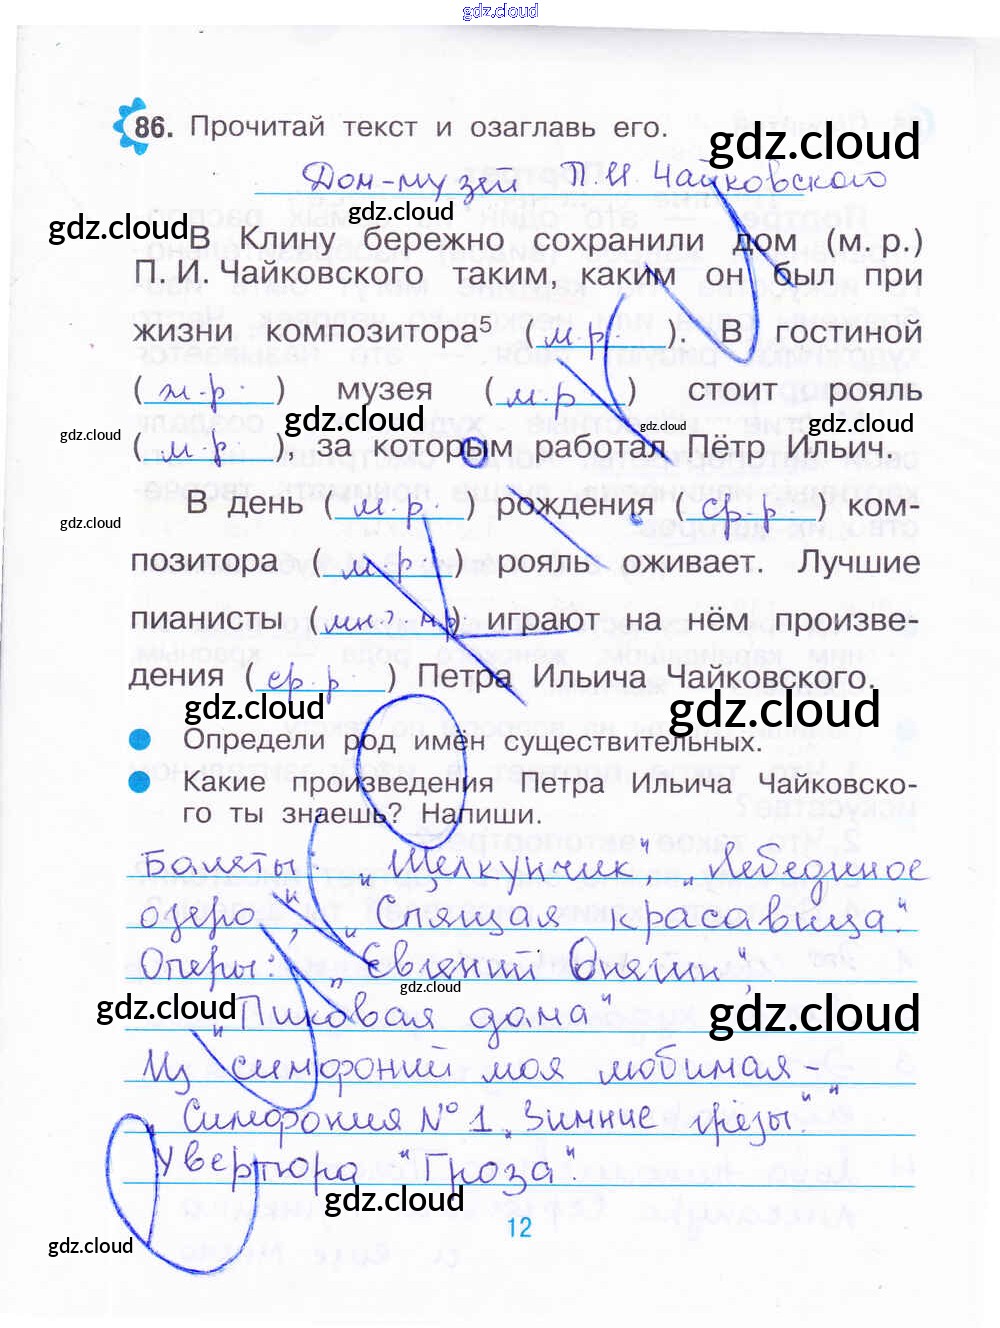 gdz.cloud
86. Прочитай текст и озаглавь его.
gdz.cloud
Дом-музей П.И Чайковского
gdz.cloud
gdz.cloud
В Клину бережно сохранили дом (м. р.)
П. И. Чайковского таким, каким он был при
жизни композитора⁵ (м.р.). В гостиной
(ж.р.) музея (м.р) стоит рояль
gdz.cloud gdz.cloud gdz.cloud gdz.cloud
(м.р.), за которым работал Пётр Ильич.
В день (м.р.) рождения (ср.р.) ком-
gdz.cloud
позитора (м.р.) рояль оживает. Лучшие
пианисты (мн.?. м.р) играют на нём произве-
дения (ср.р) Петра Ильича Чайковского.
gdz.cloud gdz.cloud
Определи род имён существительных.
Какие произведения Петра Ильича Чайковско-
го ты знаешь? Напиши.
Балеты: „Щелкунчик", „Лебединое
озеро", „Спящая красавица".
Оперы: „Евгений Онегин",
gdz.cloud
"Пиковая дама"
gdz.cloud gdz.cloud
Из симфоний моя любимая-
Симфония № 1 „Зимние грёзы."
Увертюра "Гроза"
gdz.cloud
12
gdz.cloud